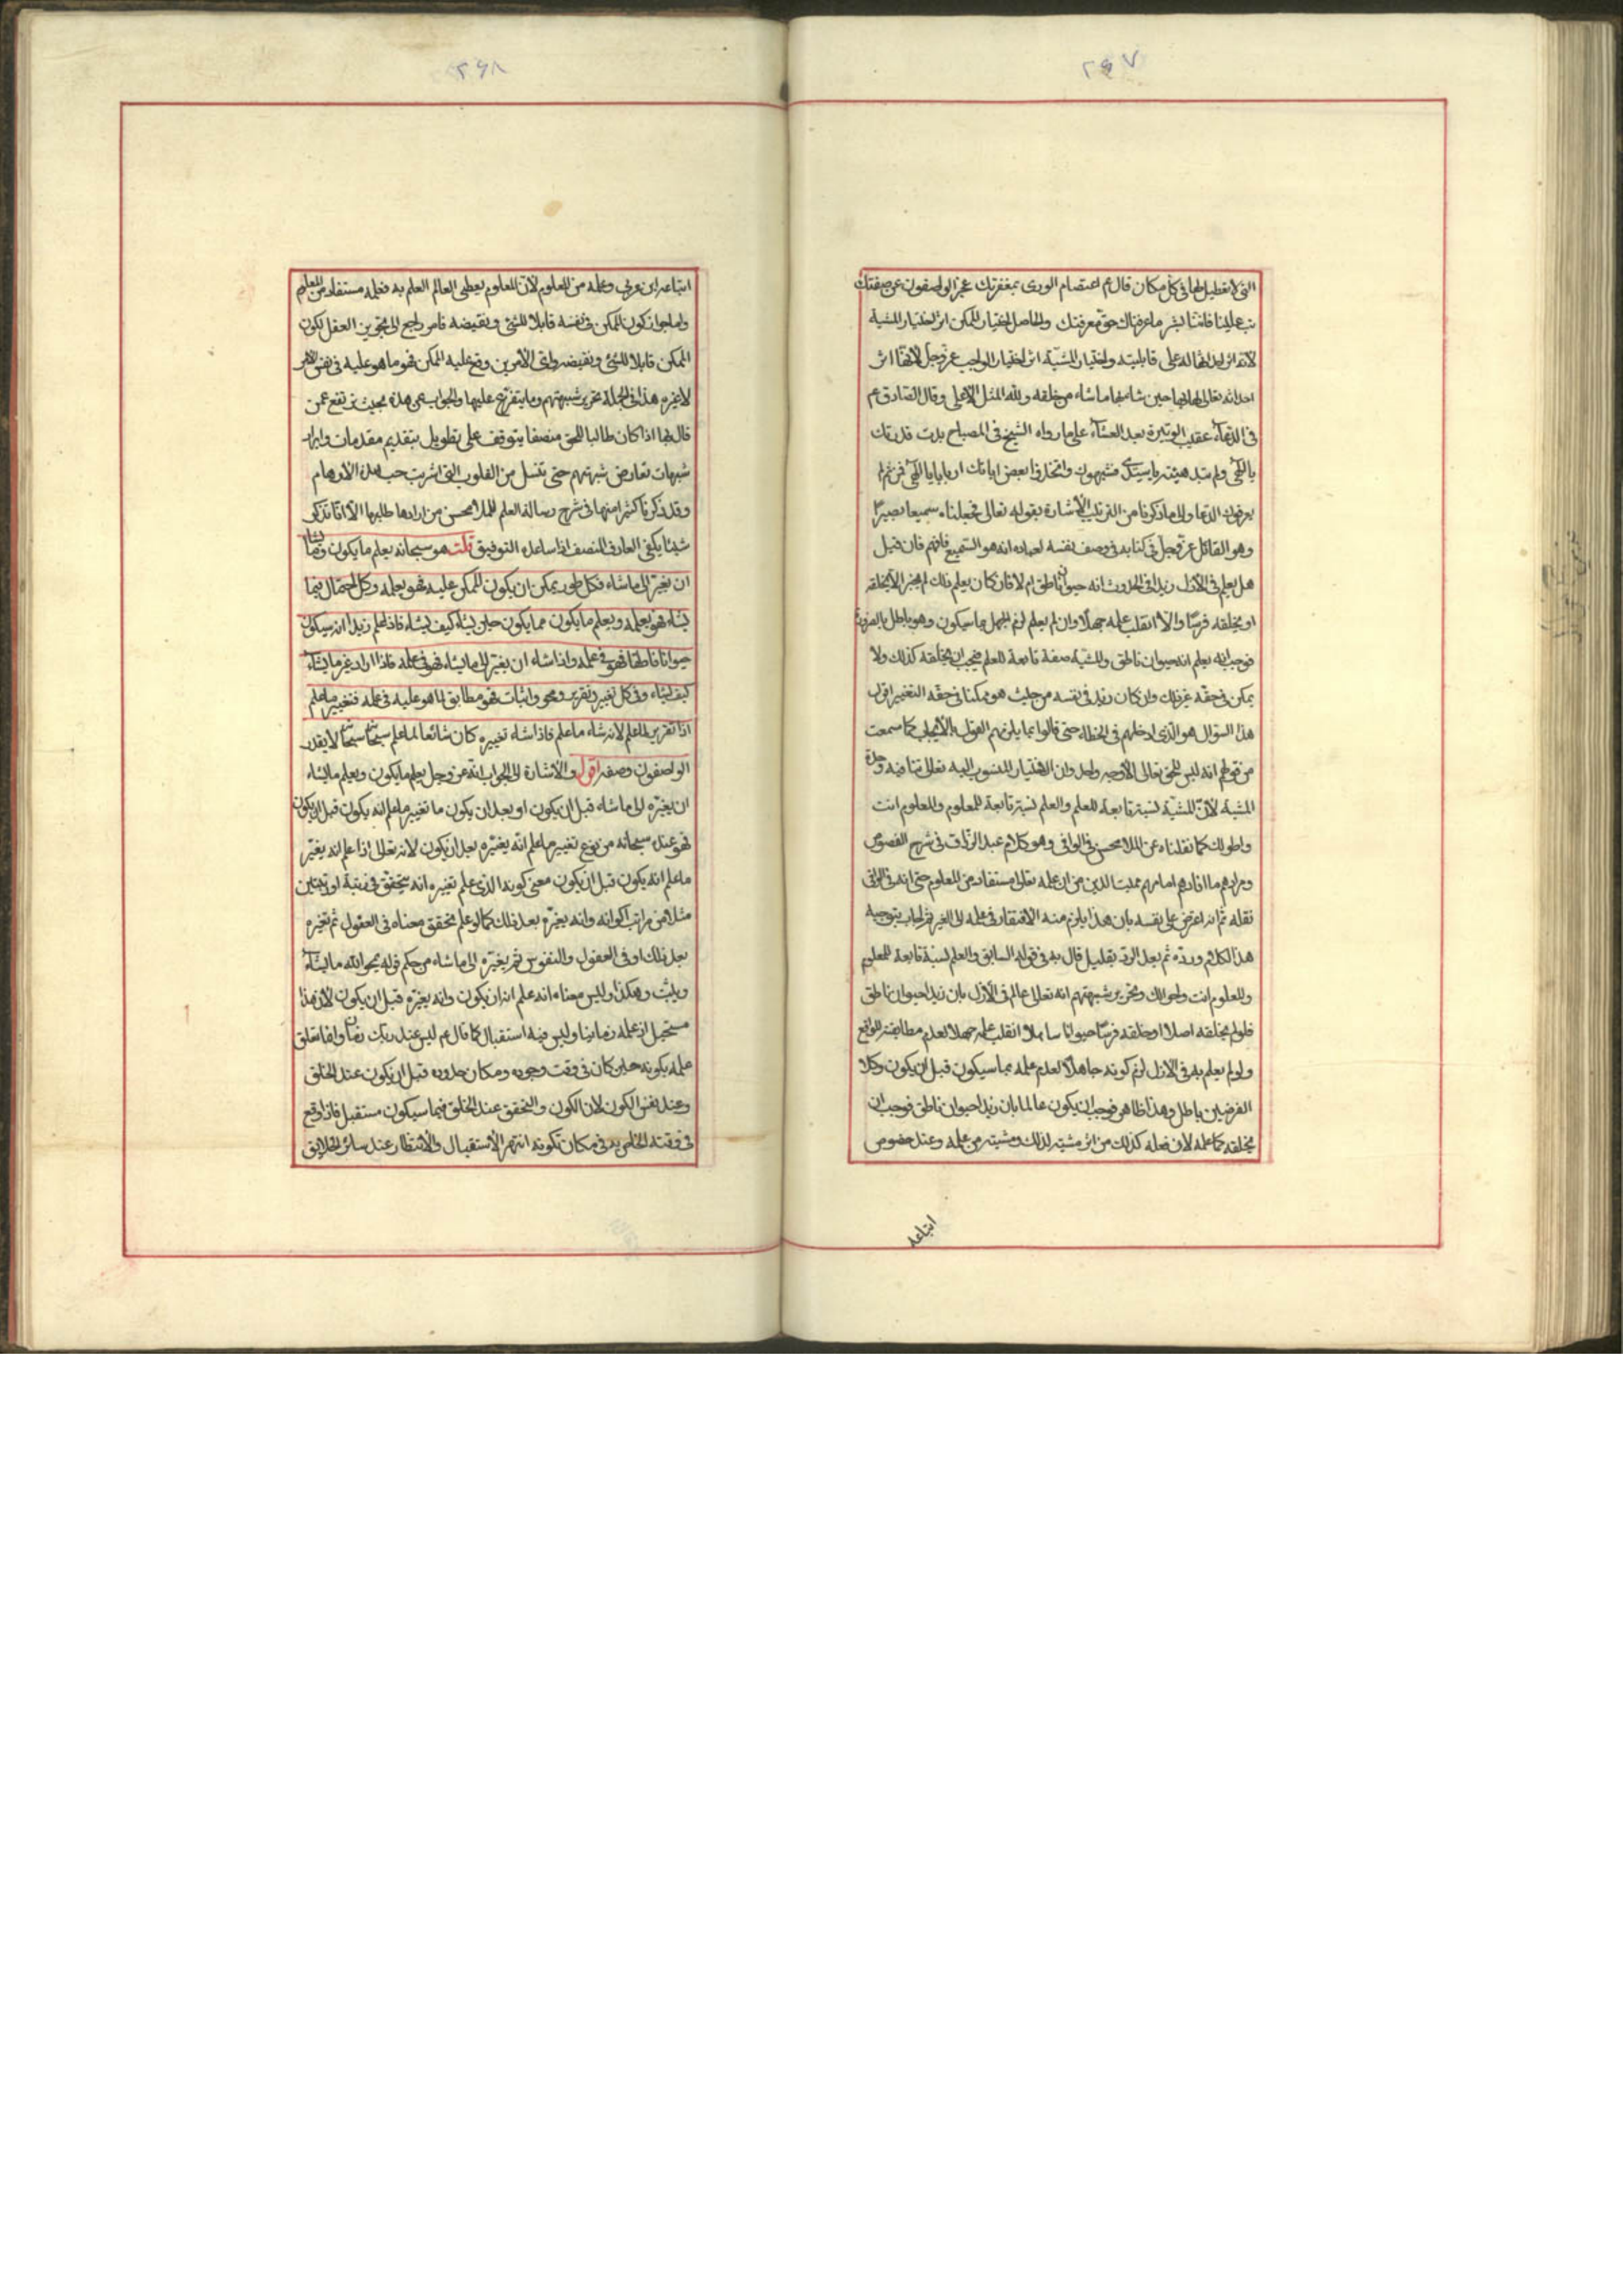 ٢٤٧
التی لا تعطیل لها فی کل مکان قال ع اعتصام الوری بمغفرتک عجز الواصفون عن صفتک
تب علینا فاننا بشر ما عرفناک حق معرفتک والحاصل اختیار الممکن اثر اختیار المشیة
لانه اثر علی قابلیته واختیار المشیّة اثر اختیار الواجب عز وجل لانها اثر
احداثه تعالی لها بها حین شاء بها ما شاء من خلقه ولله المثل الاعلی وقال الصادق ع
فی الدعآء عقیب الوتیرة بعد العشآء علی ما رواه الشیخ فی المصباح بدت قدرتک
یا الهی ولم تبد هیئته یا سیدی فشبهوک واتخذوا بعض ایاتک اربابا یا الهی فمن ثم لم
یعرفوک الدعا والی ما ذکرنا من الترتیب الاشارة بقوله تعالی فجعلناه سمیعا بصیرًا
وهو القائل عز وجل فی کتابه فی وصف نفسه لعباده انه هو السّمیع فافهم فان قیل
هل یعلم فی الازل زیدا فی الحدوث انه حیوان ناطق ام لا فان کان یعلم ذلک لم یجز الّا یخلقه
او یخلقه فرسًا والّا انقلب علمه جهلا وان لم یعلم لزم الجهل بما سیکون وهو باطل بالضرورة
فوجب انه یعلم انه حیوان ناطق والمشیّة صفة تابعة للعلم فیجب ان یخلقه کذلک ولا
یمکن فی حقه غیر ذلک وان کان زید فی نفسه من حیث هو ممکنا فی حقه التغییر اقول
هذا السؤال هو الذی ادخلهم فی الخطاء حتی قالوا بما یلزمهم القول بالایجاب کما سمعت
من قولهم انه لیس للحق تعالی الا وجه واحد وان الاختیار المنسوب الیه تعالی تنافیه وحدة
المشیة لانّ المشیّة نسبة تابعة للعلم والعلم نسبة تابعة للمعلوم والمعلوم انت
واحوالک کما نقلناه عن الملا محسن فی الوافی وهو کلام عبد الرزاق فی شرح الفصوص
ومرادهم ما افادهم امامهم ممیت الدین من ان علمه تعالی مستفاد من المعلوم حتی انه فی الوافی
نقله ثم انه اعترض علی نفسه بان هذا یلزم منه الافتقار فی علمه الی الغیر ثم اجاب بتوجیه
هذا الکلام وردّه ثم بعد الردّ بقلیل قال به فی قوله السابق والعلم نسبة تابعة للمعلوم
والمعلوم انت واحوالک وتحریر شبهتهم انه تعالی عالم فی الازل بان زیدا حیوان ناطق
فلو لم یخلقه اصلا او خلقه فرسًا حیوانا صاهلا انقلب علمه جهلا لعدم مطابقته للواقع
ولو لم یعلم به فی الازل لزم کونه جاهلاً لعدم علمه بما سیکون قبل ان یکون وکلا
الفرضین باطل وهذا ظاهر فوجب ان یکون عالما بان زیدا حیوان ناطق فوجب ان
یخلقه کما علمه لان فعله کذلک من اثر مشیته لذلک ومشیته من علمه وعند خصوص
اتباعه
٢٤٨
اتباعه ابن عربی وعلمه من المعلوم لانّ المعلوم یعطی العالم العلم به فعلمه مستفاد من المعلوم
واما جواز کون الممکن فی نفسه قابلا للشئ ونقیضه فامر راجع الی تجویز العقل لکون
الممکن قابلا للشئ ونقیضه وای الامرین وقع علیه الممکن فهو ما هو علیه فی نفس الامر
لا غیره هذا فی الجملة تحریر شبهتهم وما یتفرع علیها والجواب عن هذه بحیث ترتفع عمن
قال بها اذا کان طالبا للحق منصفا یتوقف علی تطویل بتقدیم مقدمات وایراد
شبهات تعارض شبهتهم حتی تغسل من القلوب التی اشربت حب هذه الاوهام
وقد ذکرنا کثیرا منها فی شرح رسالة العلم للملا محسن من ارادها طلبها الّا انّا نذکر
شیئا یکفی العارف المنصف اذا ساعده التوفیق قلت هو سبحانه یعلم ما یکون وما یشاء
ان یغیّر الی ما شاء فکل طور یمکن ان یکون الممکن علیه فهو یعلمه وکل احتمال فیما
یشاء فهو یعلمه ویعلم ما یکون مما یکون حین یشاء کیف یشاء فاذا علم زیدا انه سیکون
حیوانا ناطقا فهو فی علمه واذا شاء ان یغیّر الی ما یشاء فهو فی علمه فاذا اراد غیر ما یشاء
کیف یشاء وفی کل تغییر وتقریر ومحو واثبات فهو مطابق لما هو علیه فی علمه فتغییر ما علم
اذًا تقریر لما علم لانه شاء ما علم فاذا شاء تغییره کان شائعا لما علم سبحانه سبحانه لا یقدر
الواصفون وصفه اقول والاشارة الی الجواب انّه عز وجل یعلم ما یکون ویعلم ما یشاء
ان یغیّره الی ما شاء قبل ان یکون او بعد ان یکون ما تغییر ما علم انه یکون قبل ان یکون
فهو عنده سبحانه من نوع تغییر ما علم انّه یغیّره بعد ان یکون لانه تعالی اذا علم انه یغیّر
ما علم انه یکون قبل ان یکون معنی کونه الذی علم تغیره انه یتحقق فی رتبة او رتبتین
مثلا من مراتب اکوانه وانه یغیّره بعد ذلک کما لو علم تحقق معناه فی العقول ثم تغیره
بعد ذلک او فی العقول والنفوس ثم یغیّره الی ما شاء من حکم قوله یمحو الله ما یشآء
ویثبت وهکذا ولیس معناه انه علم انه ان یکون وانه یغیّره قبل ان یکون لانّ هذا
مستحیل اذ علمه زمانیا ولیس فیه استقبال کما قال ع لیس عند ربک زمان وانما تعلق
علمه بکونه حین کان فی وقت وجوده ومکان حدوده قبل ان یکون عند الخلق
وعند نفس الکون لان الکون والتحقق عند الخلق فیما سیکون مستقبل فاذا وقع
فی وقته الخاص به فی مکان تکونه انتهی الاستقبال والانتظار عند سائر الخلایق